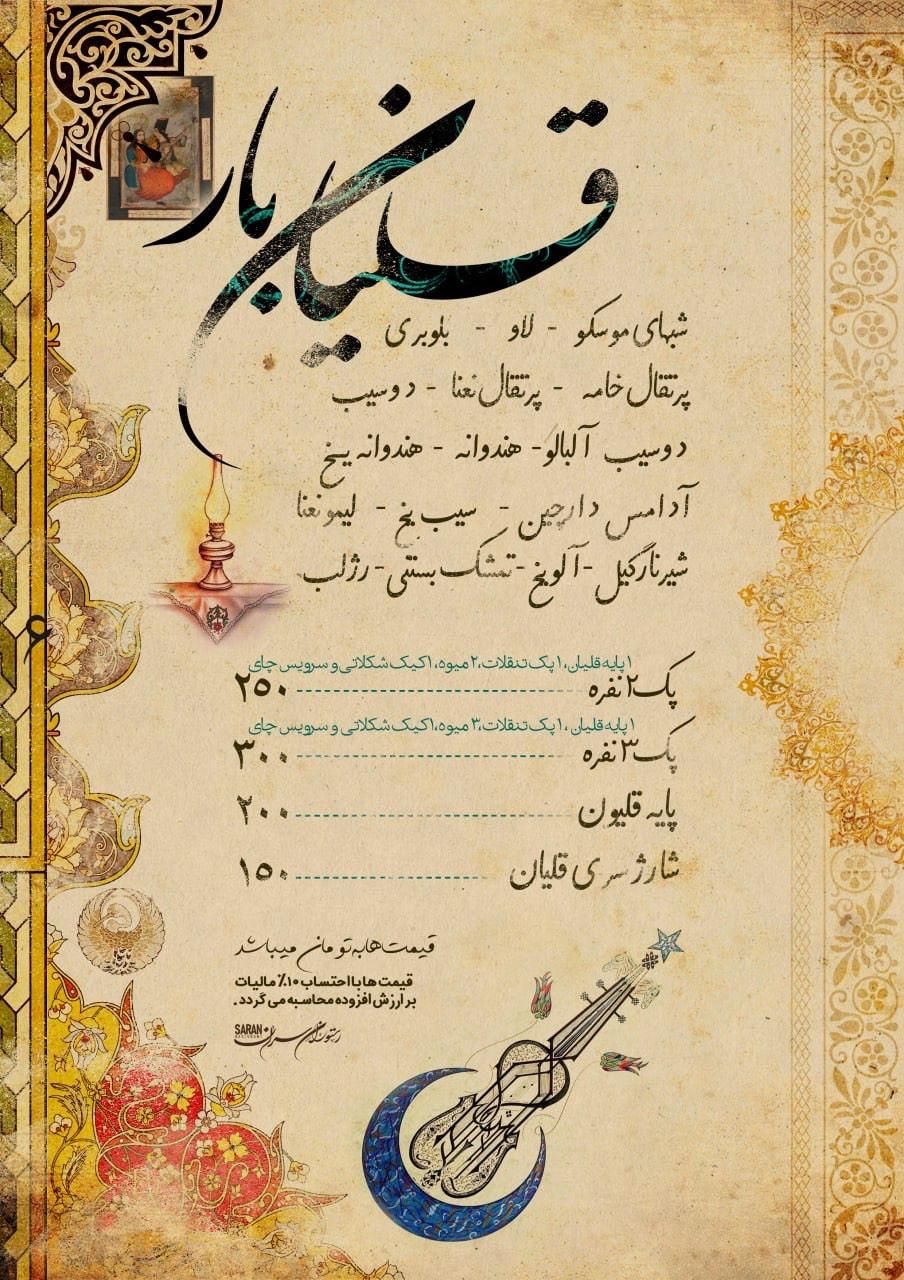 قلیان بار
شبهای موسکو - لاو - بلوبری
پرتقال خامه - پرتقال نعنا - دوسیب
دوسیب آلبالو - هندوانه - هندوانه یخ
آدامس دارچین - سیب یخ - لیمو نعنا
شیرنارگیل - آلویخ - تمشک بستنی - رژلب
۱ پایه قلیان، ۱ پک تنقلات، ۲ میوه، ۱ کیک شکلاتی و سرویس چای
پک ۲ نفره ۲۵۰
۱ پایه قلیان، ۱ پک تنقلات، ۳ میوه، ۱ کیک شکلاتی و سرویس چای
پک ۳ نفره ۳۰۰
پایه قلیون ۲۰۰
شارژ سری قلیان ۱۵۰
۶
قیمت‌ها به تومان میباشد
قیمت ها با احتساب ۱۰٪ مالیات
بر ارزش افزوده محاسبه می گردد.
رستوران سران SARAN